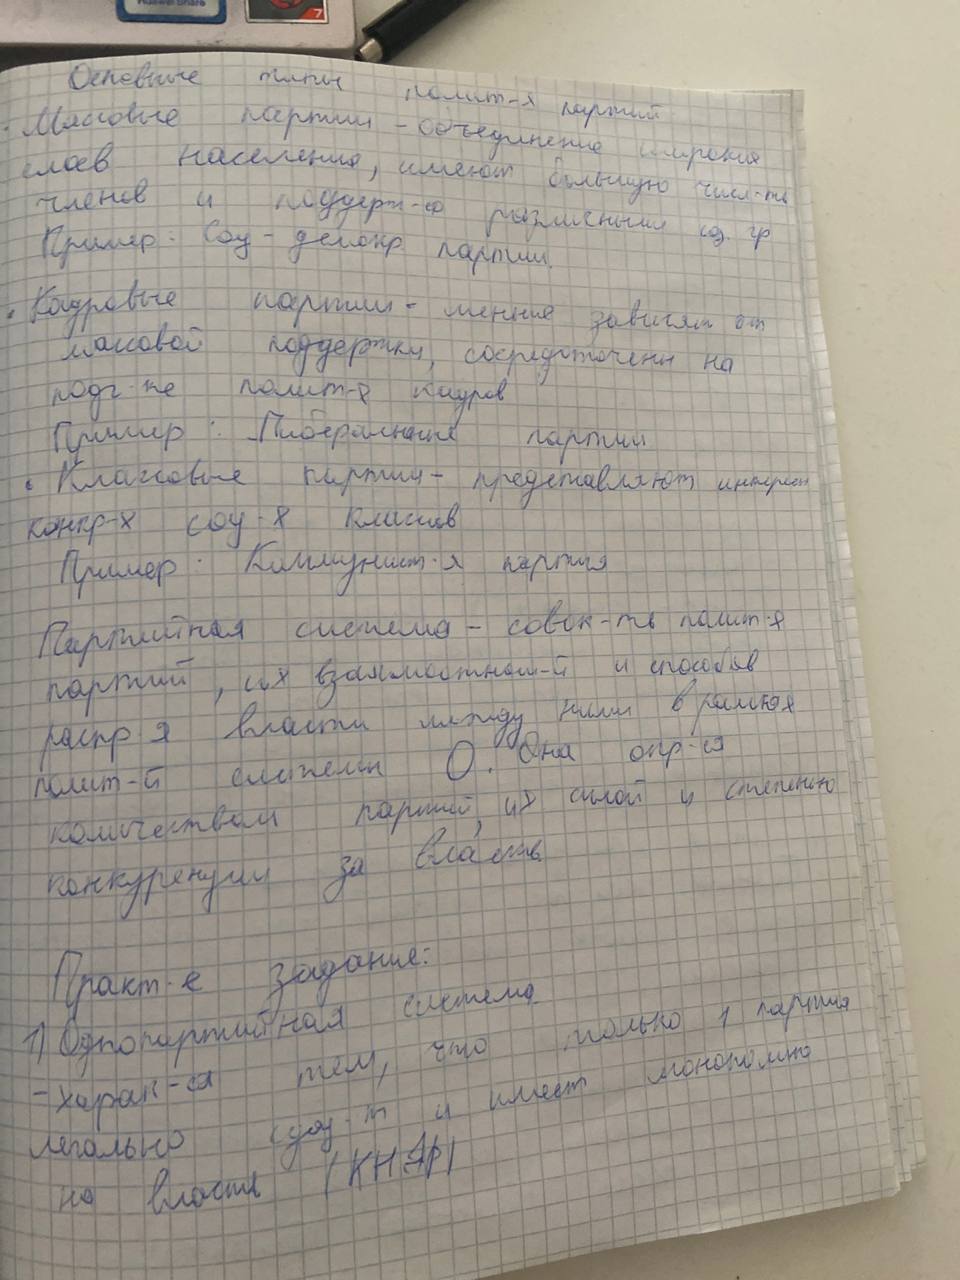 Huawei Share
7
Основные типы полит-х партий
· Массовые партии - объединение широких
слоев населения, имеют большую числ-ть
членов и поддерж-ся различными соц. гр
Пример: Соц-демокр. партии.
· Кадровые партии - меньше зависят от
массовой поддержки, сосредоточены на
подг-ке полит-х кадров
Пример: Либеральные партии
· Классовые партии - представляют интересы
конкр-х соц-х классов
Пример: Коммунист-я партия
Партийная система - совок-ть полит-х
партий, их взаимоотнош-й и способов
распр-я власти между ними в рамках
полит-й системы О. Она опр-ся
количеством партий, их силой и степенью
конкуренции за власть
Практ-е задание:
1) Однопартийная система
- харак-ся тем, что только 1 партия
легально сущ-т и имеет монополию
на власть (КНДР)